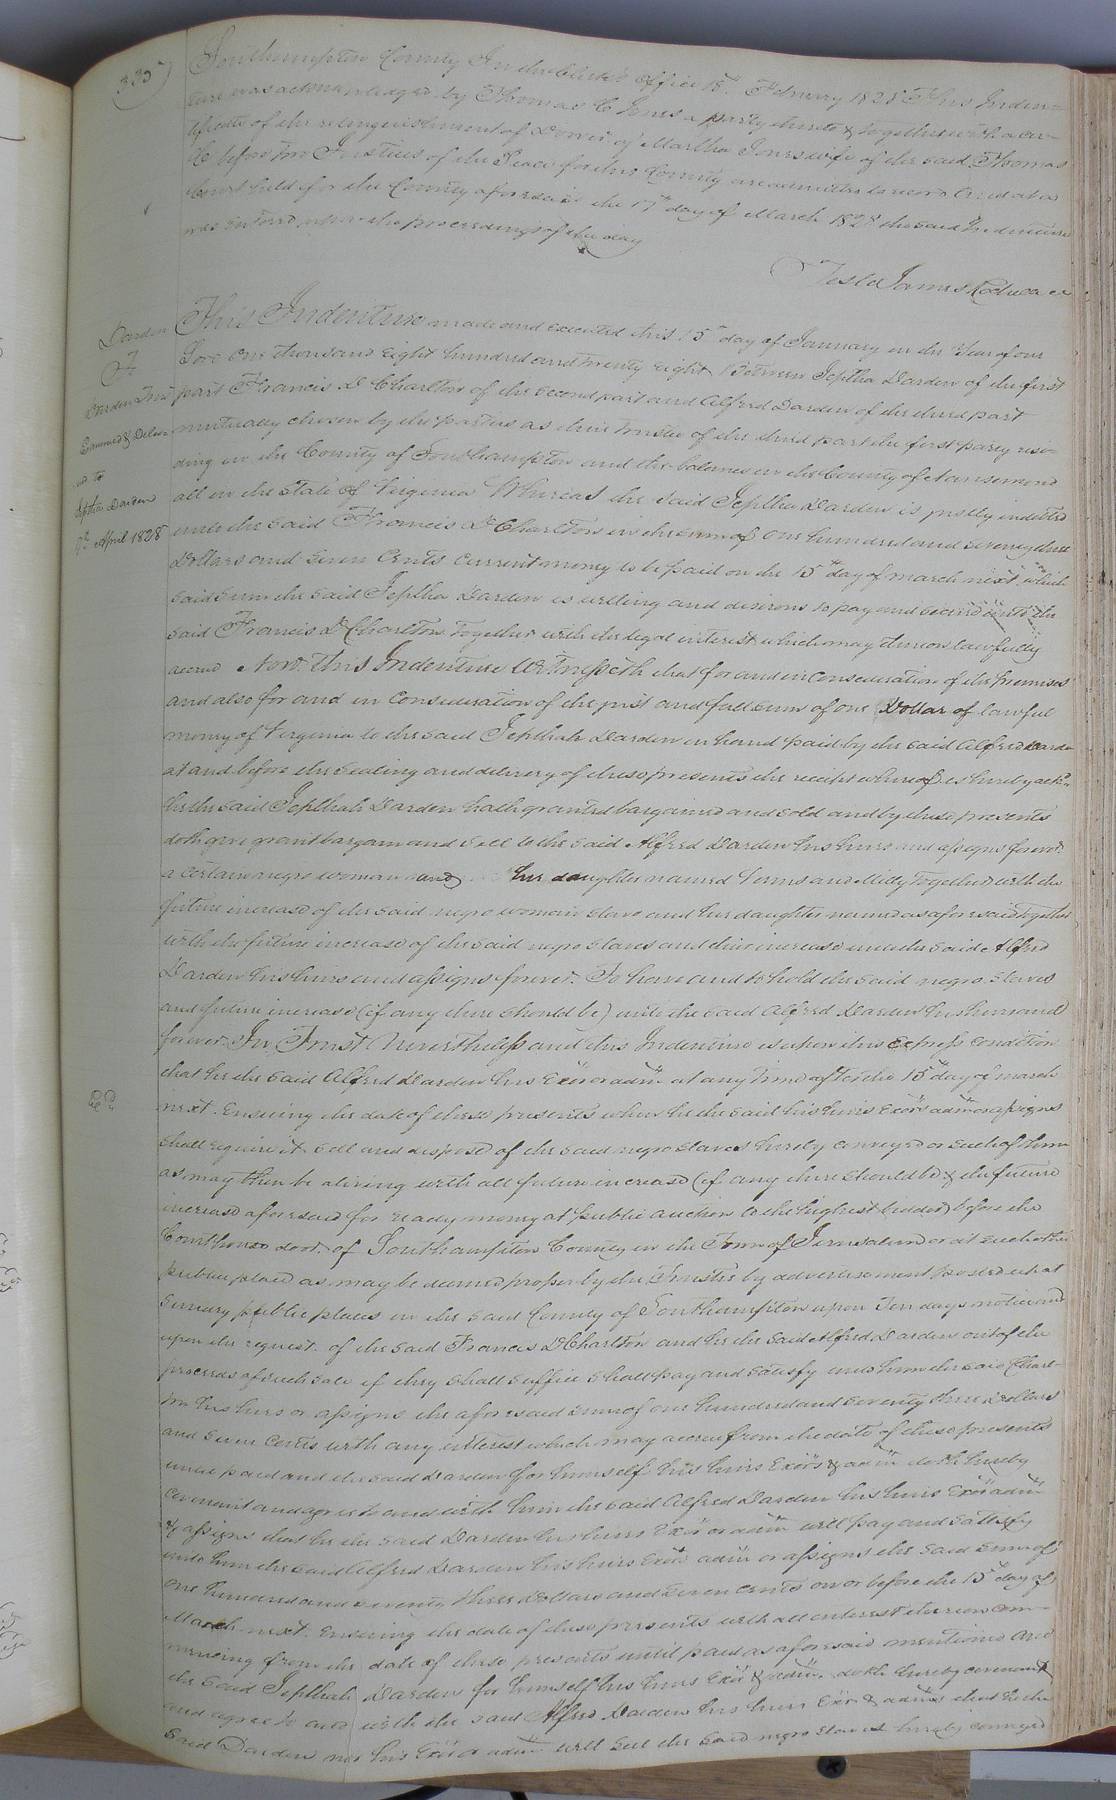 335
Southampton County In the Clerk's office 18th February 1828 This Inden=
ture was acknowledged by Thomas C Jones a party thereto & together with a cer=
tificate of the relinquishment of Dower of Martha Jones wife of the said Thomas
C before two Justices of the Peace for this County are admitted to record And at a
Court held for the County aforesaid the 17th day of March 1828 the said Indenture
was entered upon the proceedings of the day
Teste James Rochelle cc
Darden
To
Darden Trus
Examined & Deliver
ed to
Jeptha Darden
April 1828
This Indenture made and executed this 15th day of January in the Year of our
Lord One thousand eight hundred and twenty eight Between Jeptha Darden of the first
part Francis D Charlton of the second part and Alfred Darden of the third part
mutually chosen by the parties as their trustee of the third part the first party resi=
ding in the County of Southampton and the balance in the County of Nansemond
all in the State of Virginia Whereas the said Jeptha Darden is justly indebted
unto the said Francis D Charlton in the sum of One hundred and seventy three
Dollars and seven Cents Current money to be paid on the 15th day of march next, which
said sum the said Jeptha Darden is willing and desirous to pay and secure unto the
said Francis D Charlton together with the legal interest which may thereon lawfully
accrue Now This Indenture Witnesseth that for and in Consideration of the premises
and also for and in Consideration of the just and full sum of one Dollar of lawful
money of Virginia to the said Jepthah Darden in hand paid by the said Alfred Darden
at and before the sealing and delivery of these presents the receipt whereof is hereby ackd
he the said Jepthah Darden hath granted bargained and sold and by these presents
doth give grant bargain and sell to the said Alfred Darden his heirs and assigns forever
a certain negro woman and her daughter named and Milly together with the
future increase of the said negro woman slave and her daughter named as aforesaid together
with the future increase of the said negro slaves and their increase unto the said Alfred
Darden his heirs and assigns forever. To have and to hold the said negro slaves
and future increase (if any there should be) unto the said Alfred Darden his heirs and
forever. In Trust Nevertheless and this Indenture is upon this express condition
that he the said Alfred Darden his Exor or admr at any time after the 15th day of march
next. Ensuing the date of these presents when he the said his heirs Exors admrs or assigns
shall require it sell and dispose of the said negro slaves hereby conveyed or such of them
as may then be aliving with all future increase (if any there should be & the future
increase aforesaid for ready money at public auction to the highest bidder) before the
Courthouse door of Southampton County in the Town of Jerusalem or at such other
public place as may be deemed proper by the Trustee by advertisement posted up at
public places in the said County of Southampton upon Ten days notice and
upon the request of the said Francis D Charlton and he the said Alfred Darden out of the
proceeds of such sale if they shall suffice shall pay and satisfy unto him the said Charl=
ton his heirs or assigns the aforesaid sum of one hundred and seventy three Dollars
and seven Cents with any interest which may accrue from the date of these presents
until paid and the said Darden for himself his heirs Exors & admr doth hereby
covenant and agree to and with him the said Alfred Darden his heirs Exor admr
& assigns that he the said Darden his heirs Exor or admr will pay and satisfy
unto him the said Alfred Darden his heirs Exor admr or assigns the said sum of
One hundred and seventy three Dollars and seven cents on or before the 15th day of
March next. Ensuing the date of these presents with all interest thereon com=
mencing from the date of these presents until paid as aforesaid mentioned and
the said Jepthah Darden for himself his heirs Exor & admr. doth hereby covenant
and agree to and with the said Alfred Darden his heirs Exor & admrs that he the
said Darden nor his Exor or admr will sell the said negro slaves hereby conveyed